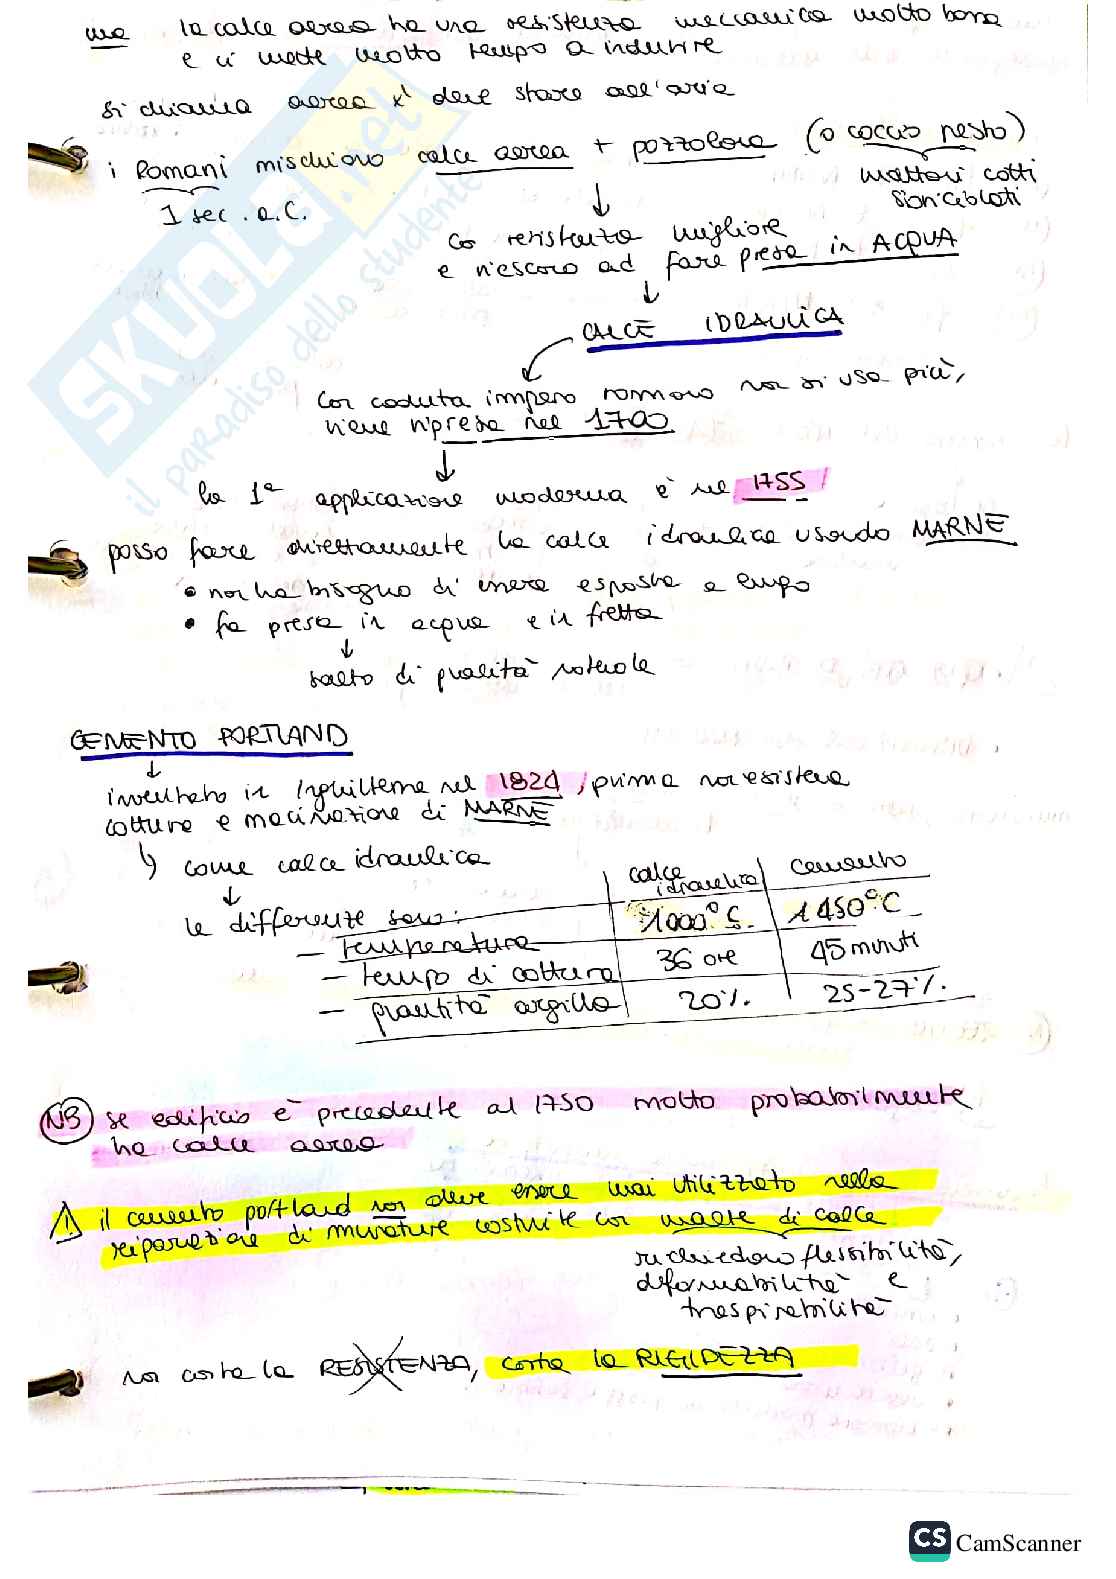 ma la calce aerea ha una resistenza meccanica molto bassa
e ci mette molto tempo a indurire
si chiama aerea xk' deve stare all'aria
i Romani mischiano calce aerea + pozzolana (o coccio pesto)
1 sec. a.C.
mattoni cotti
sbriciolati
↓
resistenza migliore
e riescono ad fare presa in ACQUA
↓
CALCE IDRAULICA
con caduta impero romano non si usa più,
viene ripresa nel 1700
↓
la 1ª applicazione moderna è nel 1755
posso fare direttamente la calce idraulica usando MARNE
• non ha bisogno di essere esposta a
• fa presa in acqua e in fretta
↓
salto di qualità notevole
CEMENTO PORTLAND
↓
inventato in Inghilterra nel 1824, prima non esisteva
cottura e macinazione di MARNE
↳ come calce idraulica
↓
le differenze sono:
calce idraulica | cemento
- temperatura 1000°C. 1450°C
- tempo di cottura 36 ore 45 minuti
- quantità argilla 20%. 25-27%.
NB se edificio è precedente al 1750 molto probabilmente
ha calce aerea
⚠ il cemento portland non deve essere mai utilizzato nella
riparazione di murature costruite con malte di calce
richiedono flessibilità,
deformabilità e
traspirabilità
non conta la RESISTENZA, conta la RIGIDEZZA
SKUOLA.net
il paradiso dello studente
CS CamScanner